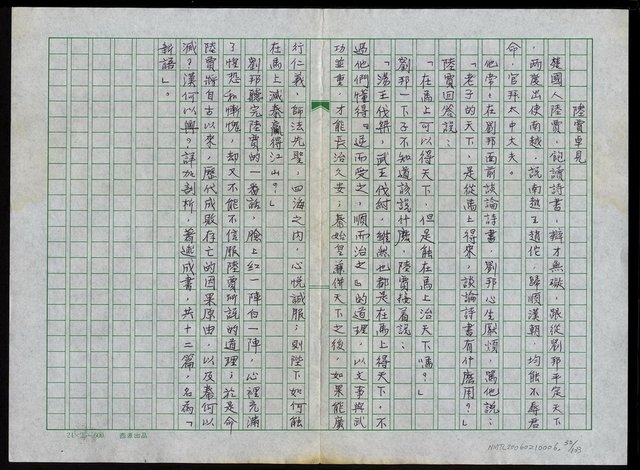 陸賈卓見
楚國人陸賈，飽讀詩書，辯才無礙，跟從劉邦平定天下
，兩度出使南越，說南越王趙佗，歸順漢朝，均能不辱君
命，官拜太中大夫。
他常在劉邦面前談論詩書，劉邦心生厭煩，罵他說：
「老子的天下，是從馬上得來，談論詩書有什麼用？」
陸賈回答說：
「在馬上可以得天下，但是能在馬上治天下嗎？」
劉邦一下子不知道該說什麼，陸賈接着說：
「湯王伐桀，武王伐紂，雖然也都是在馬上得天下，不
過他們懂得『逆而受之，順而治之』的道理，以文事與武
功並重，才能長治久安；秦始皇兼併天下之後，如果能廣
行仁義，師法先聖，四海之內，心悅誠服；則陛下如何能
在馬上滅秦贏得江山？」
劉邦聽完陸賈的一番話，臉上紅一陣白一陣，心裡充滿
了惶恐和慚愧，却又不能不信服陸賈所說的道理；於是命
陸賈將自古以來，歷代成敗存亡的因果原由，以及秦何以
滅？漢何以興？詳加剖析，著述成書，共十二篇，名為「
新語」。
24×25=600
NMTL20060210006